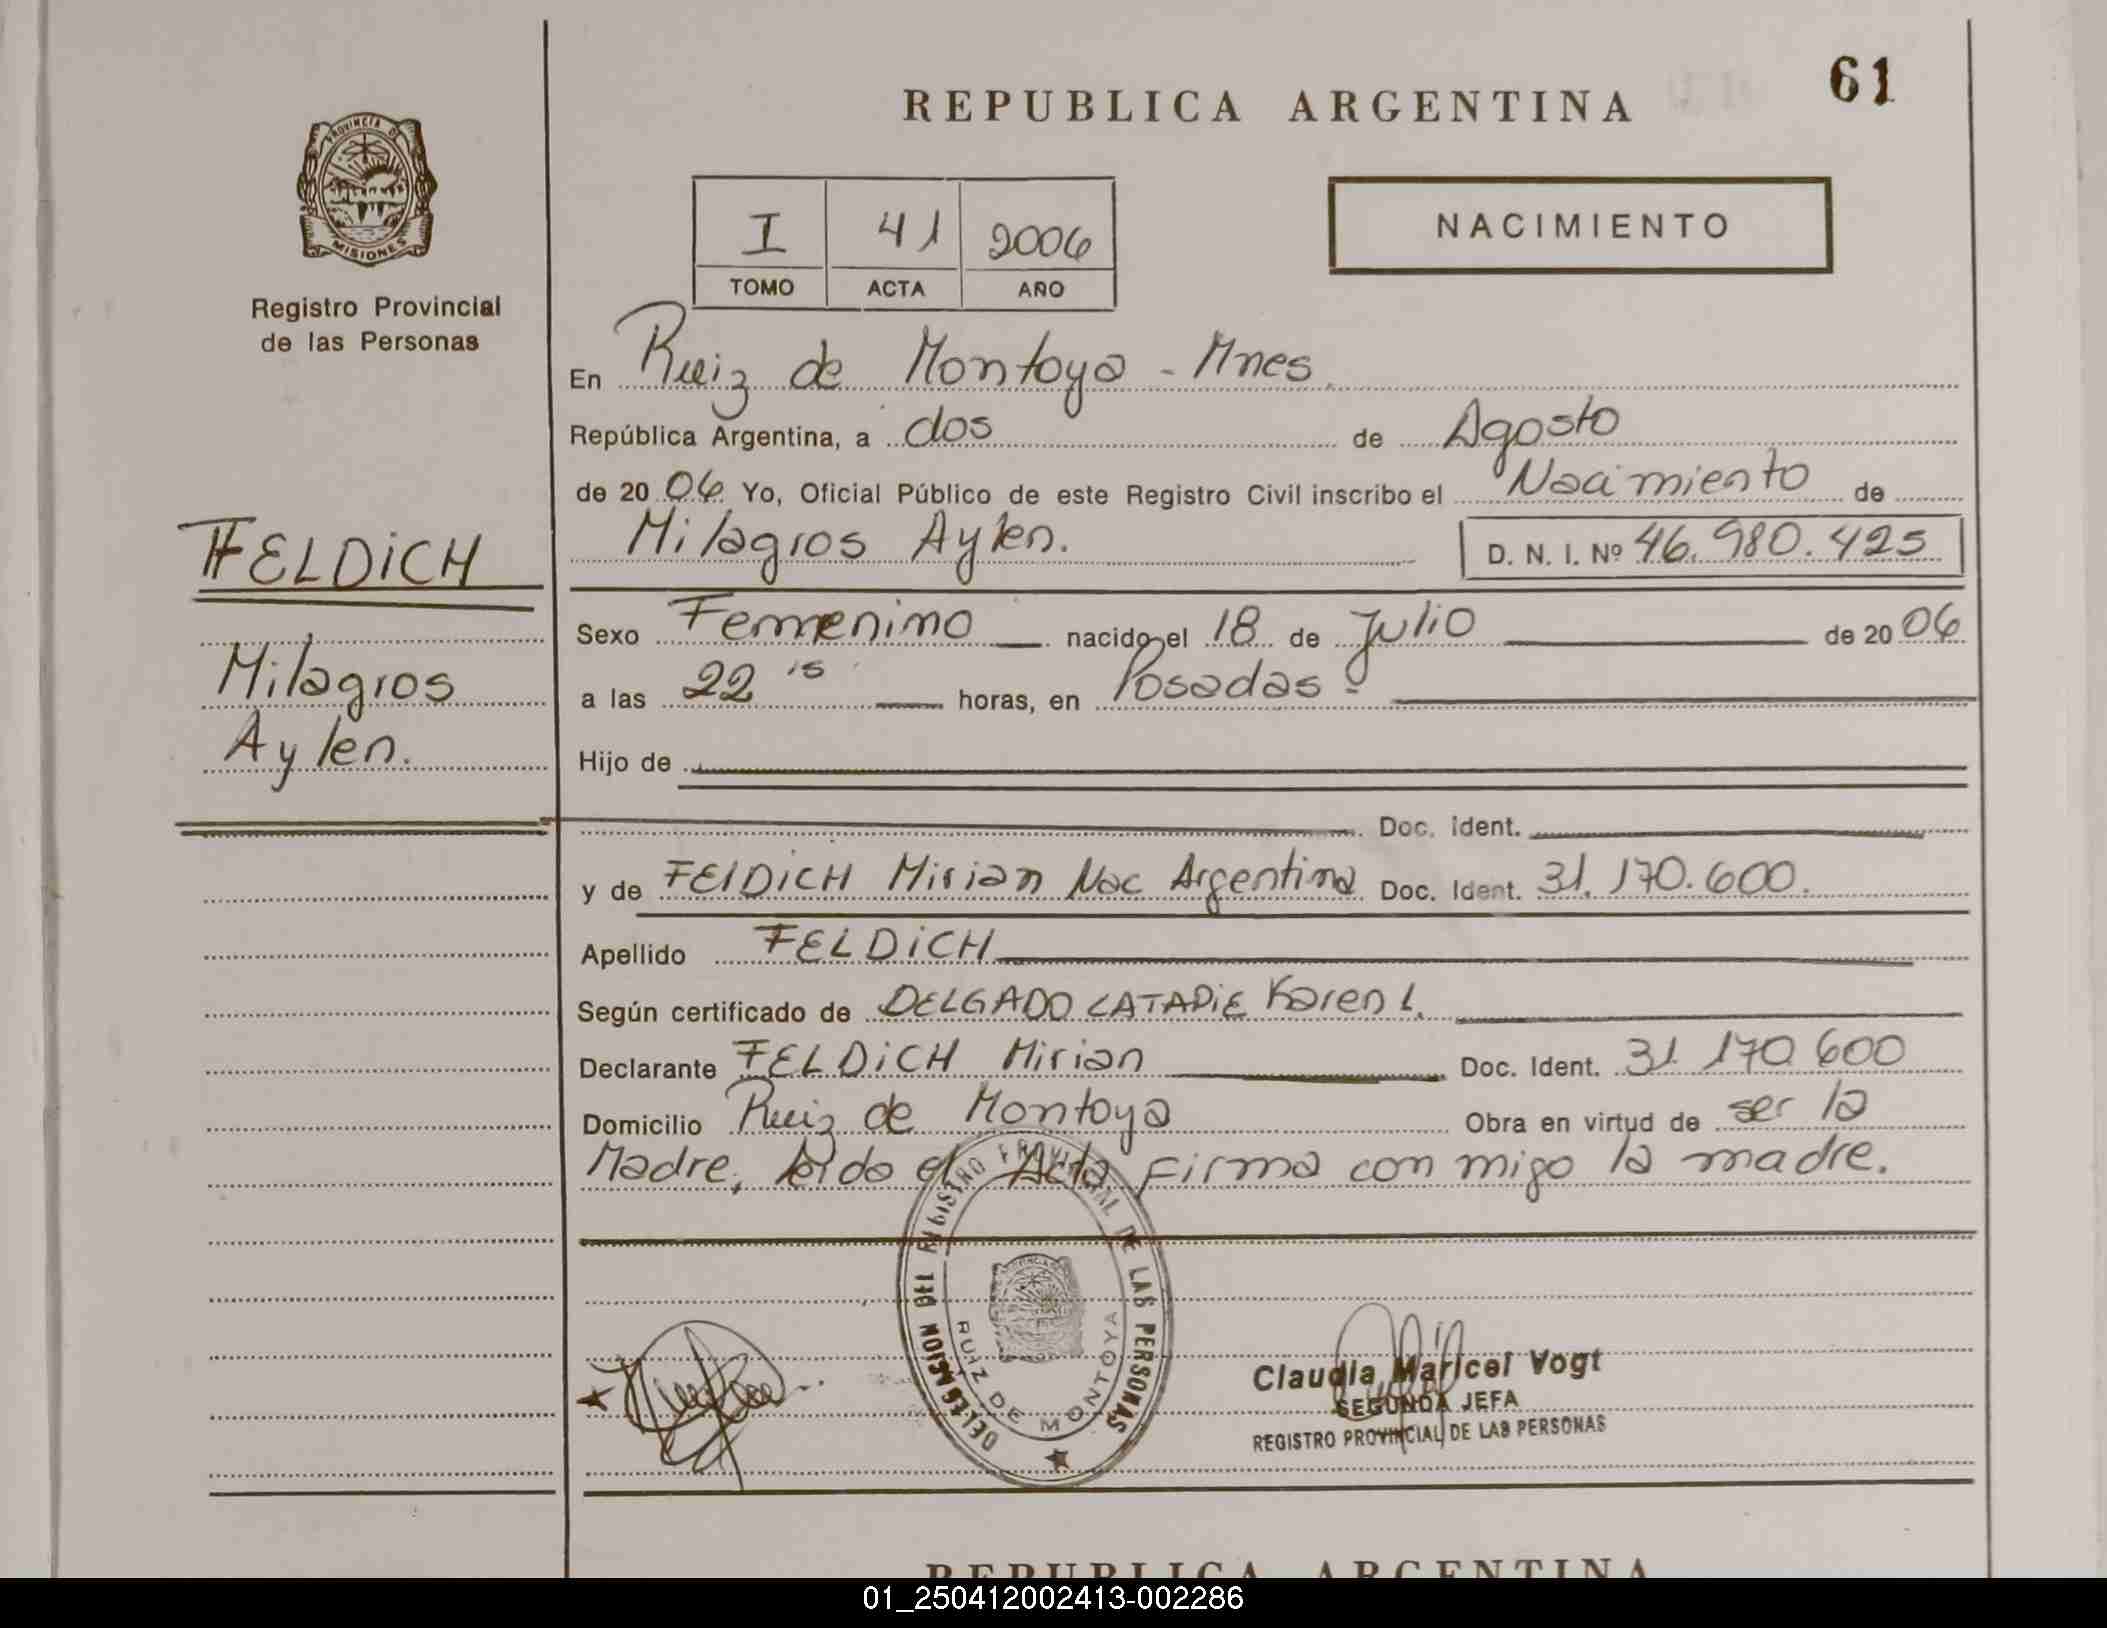 61
REPUBLICA ARGENTINA
PROVINCIA DE
MISIONES
Registro Provincial
de las Personas
I 41 2006
TOMO ACTA AÑO
NACIMIENTO
En Ruiz de Montoya - Mnes.
República Argentina, a dos de Agosto
de 2006 Yo, Oficial Público de este Registro Civil inscribo el Nacimiento de
Milagros Aylen. D. N. I. Nº 46.980.425
FELDICH
Milagros
Aylen.
Sexo Femenino nacido el 18 de Julio de 2006
a las 22 15 horas, en Posadas -
Hijo de
Doc. Ident.
y de FELDICH Mirian Nac Argentina Doc. Ident. 31.170.600.
Apellido FELDICH
Según certificado de DELGADO LATADIE Karen L.
Declarante FELDICH Mirian Doc. Ident. 31 170 600
Domicilio Ruiz de Montoya Obra en virtud de ser la
Madre, leido el Acta Firma con migo la madre.
DELEGACION DEL REGISTRO PROVINCIAL DE LAS PERSONAS
RUIZ DE MONTOYA
Claudia Maricel Vogt
SEGUNDA JEFA
REGISTRO PROVINCIAL DE LAS PERSONAS
REPUBLICA ARGENTINA
01_250412002413-002286